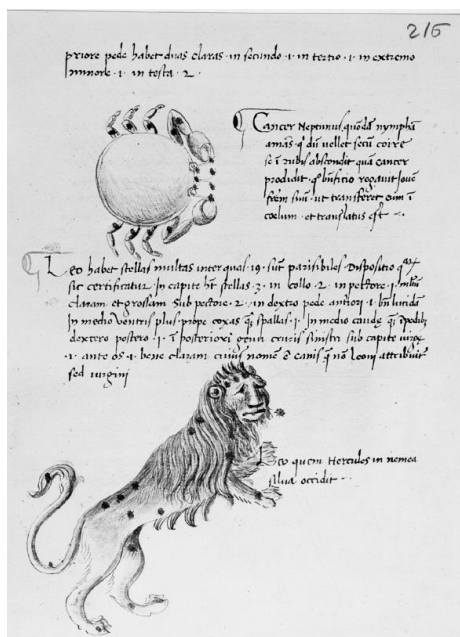 216
priore pede habet duas claras · in secundo · 1 · in tertio · 1 · in extremo
minore · 1 · in testa · 2 ·
Cancer Neptunnus quodā nympham
amās · q̄ dū vellet secū coire
se ī rubis abscondit quā cancer
prodidit · rogavit
frēm suū · ut transferet eum ī
coelum · et translatus est ·
Leo habet stellas multas inter quas · 19 · sūt parisibiles · Dispositio
sic certificatur In capite hт̄ stellas · 3 · in collo · 2 · in pectore · 1 ·
claram et grossam sub pectore · 2 · in dextro pede anťiori · 1 · bn̄ lucidā
In medio ventris plus prope coxas spallas · 1 · In medio caudę
dextero postero · 1 · ī posteriori genu cruris sinistri sub capite
· 1 · ante os · 1 · bene claram cuius nomē ē canis q̄ nō leoni attribuit̄
sed virgini
Leo quem Hercules in nemea
silva occidit ·